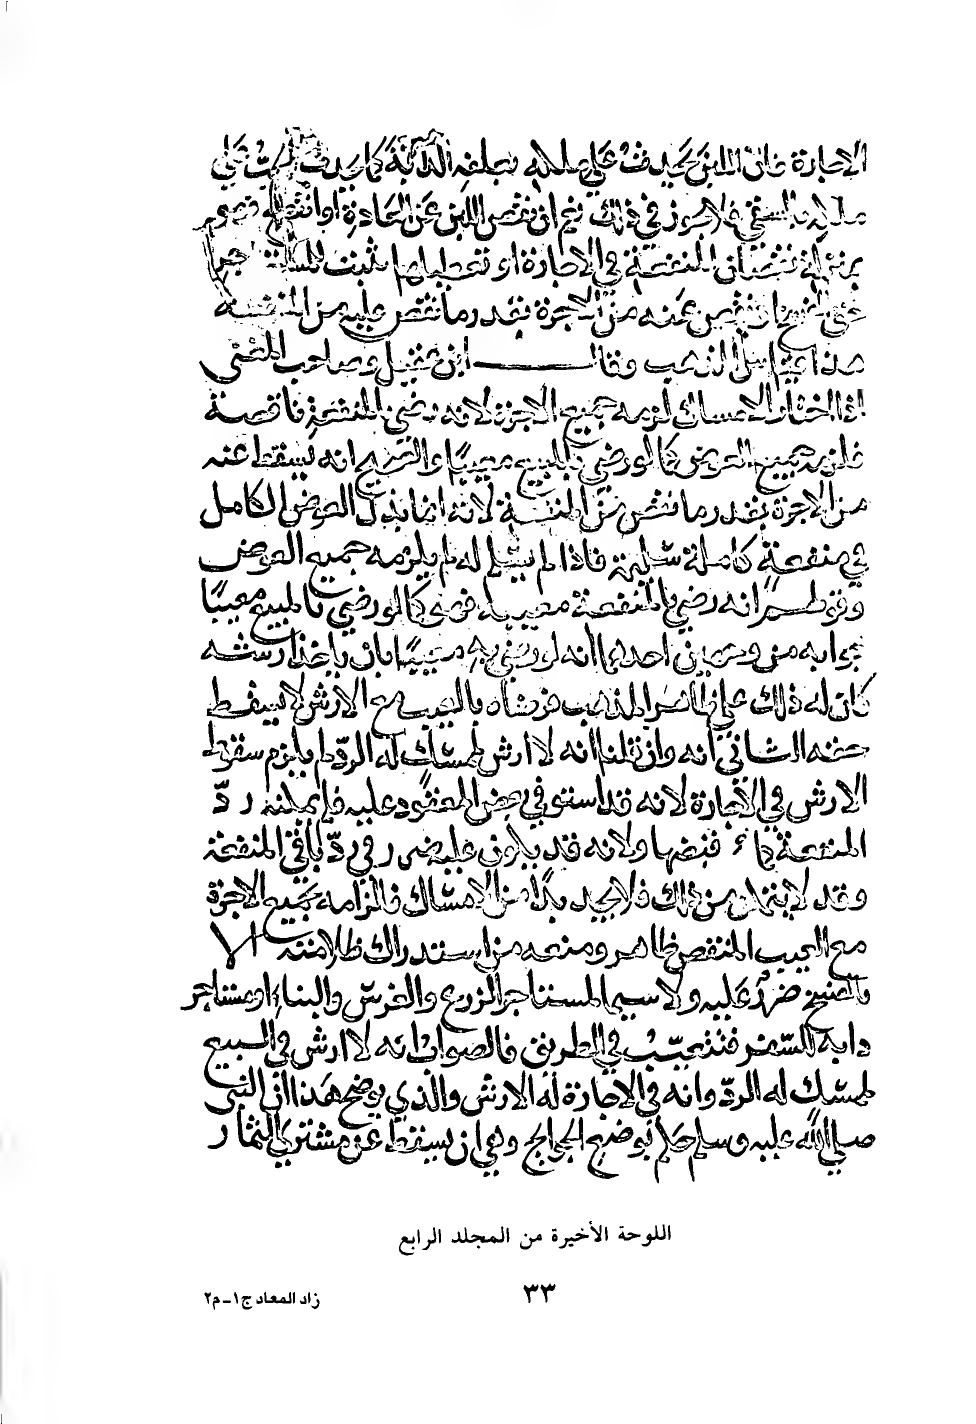 الاجارة فان اللبن يحدث على ملكه بعلفه الدابة كما يحدث على
ملكه بالسقي فلا جوز في ذلك نعم ان نقص اللبن عن العادة او انقطع فهو
بمنزلة نقصان المنفعة في الاجارة او تعطيلها يثبت للمستاجر
حق الفسخ او ينقص عنه من الاجرة بقدر ما نقص عليه من المنفعة
هذا قياس المذهب وقال ابن عقيل وصاحب المغني
اذا اختار الامساك لزمه جميع الاجرة لانه رضي بالمنفعة ناقصة
فلزمه جميع العوض كما لو رضي بالمبيع معيبا والصحيح انه يسقط عنه
من الاجرة بقدر ما نقص من المنفعة لانه انما بذل العوض الكامل
في منفعة كاملة سليمة فاذا لم تسلم له لم يلزمه جميع العوض
وقولهم انه رضي بالمنفعة معيبة فهو كما لو رضي بالمبيع معيبا
جوابه من وجهين احدهما انه لو رضي به معيبا بان ياخذ ارشه
كان له ذلك على ظاهر المذهب فرضاه بالعيب مع الارش لا يسقط
حقه الثاني انه وان قلنا انه لا ارش لممسك له الرد لم يلزم سقوط
الارش في الاجارة لانه قد استوفى بعض المعقود عليه فلم يمكنه رد
المنفعة كما قبضها ولانه قد يكون عليه ضرر في رد باقي المنفعة
وقد لا يتمكن من ذلك فلا يجد بدا من الامساك فالزامه بجميع الاجرة
مع العيب المنقص ظاهر ومنعه من استدراك ظلامته الا
بالفسخ ضرر عليه ولا سيما المستاجر الزرع والغرس والبناء او مستاجر
دابة للسفر فتتعيب في الطريق فالصواب انه لا ارش في المبيع
لممسك له الرد وانه في الاجارة له الارش والذي يوضح هذا ان النبي
صلى الله عليه وسلم حكم بوضع الجوايح وهي ان يسقط عن مشتري الثمار
اللوحة الأخيرة من المجلد الرابع
٣٣
زاد المعاد ج١-م٢